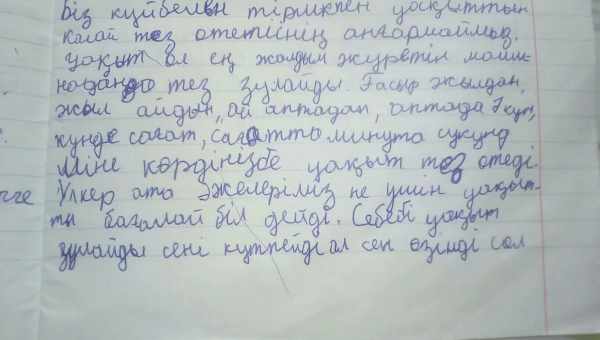 біз күйбелең тірлікпен уақыттын
қалай тез өтетінің аңғармаймыз.
Уақыт ол ең жолдым жүретін маши-
надандо тез зулайды. Ғасыр жылдан,
жыл айдын, ай аптадан, аптада 7 күн,
күнде сағат, сағатта минута сукунд
Міне көрдіңізбе уақыт тез өтеді
Үлкер ата әжелеріміз не үшін уақыт-
ты бағалай біл дейді. Себебі уақыт
зулайды сені күтпейді ал сен өзінді сол